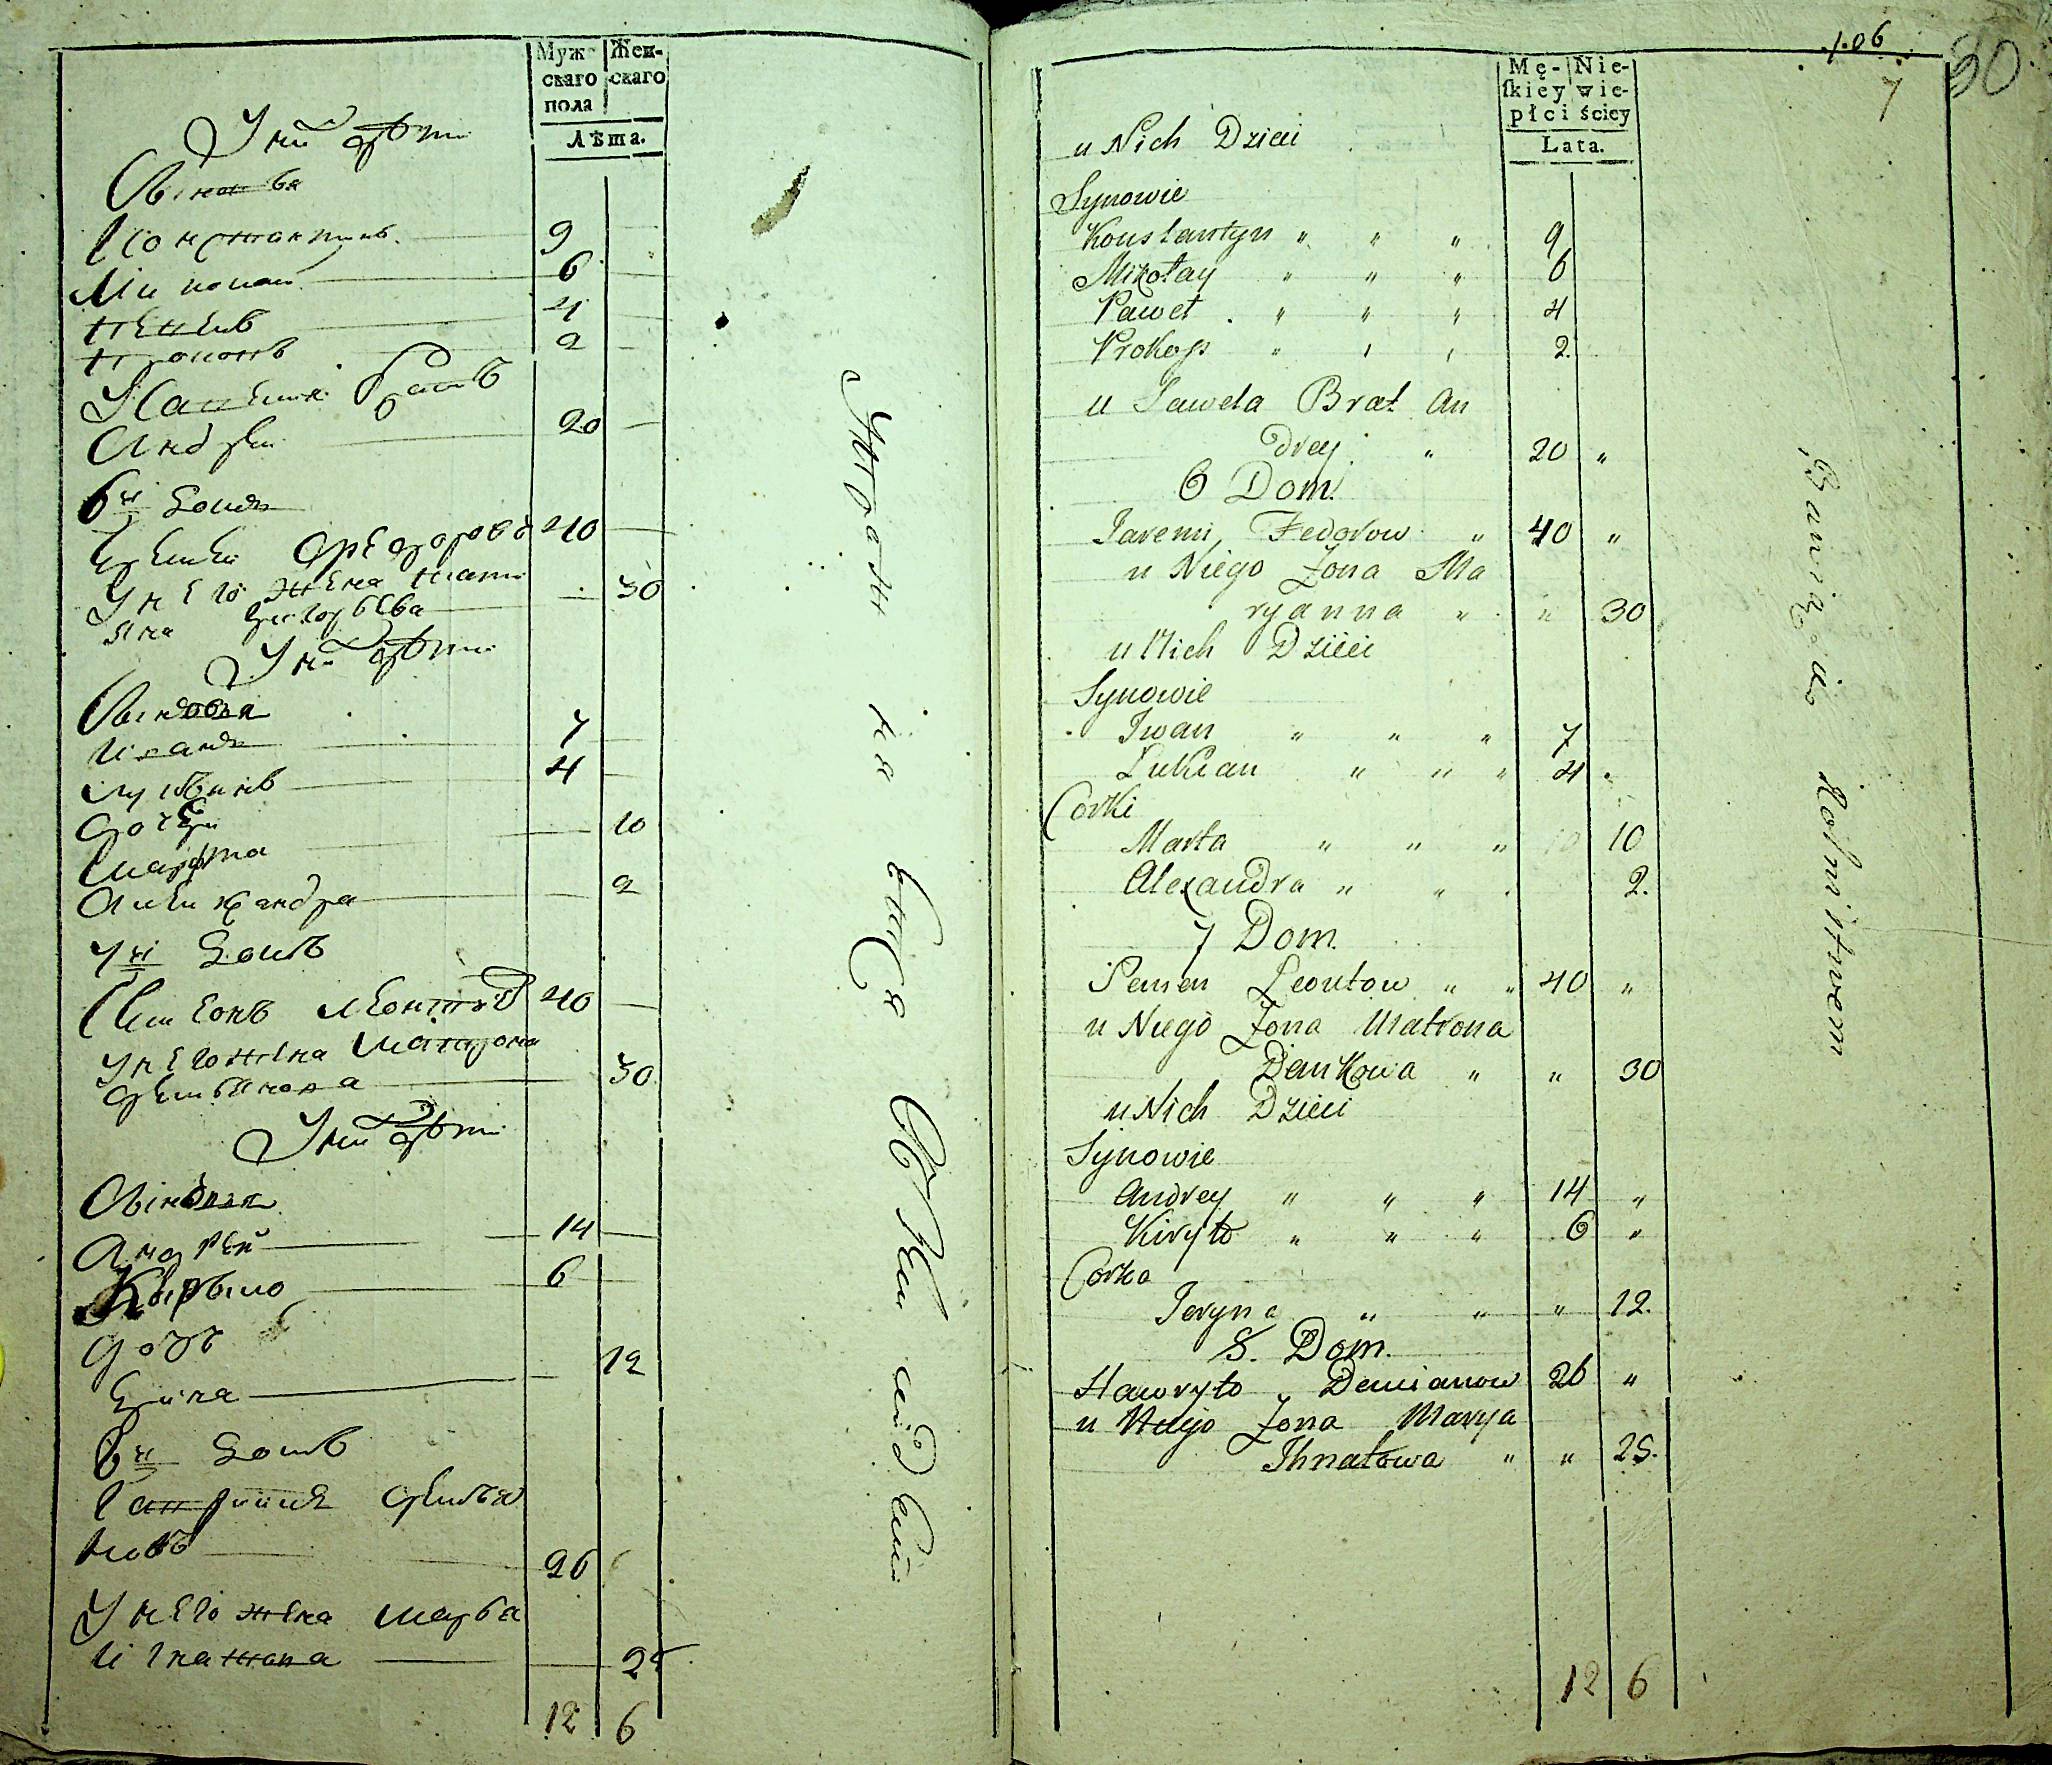 Муж- Жен-
скаго скаго
пола
Лѣта.
У нихъ дѣти
Сыновья
Константинъ 9
Николай 6
Павелъ 4
Прокопъ 2
Павелъ братъ
Андрей 20
6й домъ
Еремей Федоровъ 40
У него жена Мари
яна Григорьева 30
У нихъ дѣти
Сыновья
Иванъ 7
Лукьянъ 4
Дочери
Марфта 10
Александра 2
7й домъ
Семенъ Леонтовъ 40
У него жена Матрона
Демьянова 30
У нихъ дѣти
Сыновья
Андрей 14
Кирыло 6
дочь
Ерина 12
8й домъ
Гаврило Демьа
новъ 26
У него жена Марья
Игнатова 25
12 6
106
80
7
Mę- Nie-
ſkiey wie-
płci ściey
Lata.
u Nich Dzieci
Synowie
Konstantyn " " " 9
Mikołay " " " 6
Paweł " " " 4
Prokop " " " 2.
u Paweła Brat An
drey " 20 "
6 Dom.
Jaremi Fedorow " 40 "
u Niego Zona Ma
ryanna " " 30
u Nich Dzieci
Synowie
Iwan " " " 7
Łukian " " " 4
Corki
Marta " " " 10
Alexandra " " 2.
7 Dom.
Semen Leontow " " 40 "
u Niego Zona Matrona
Demkowa " " 30
u Nich Dzieci
Synowie
Andrey " " " 14 "
Kiryło " " " 6 "
Corka
Jaryna " " " 12.
8. Dom.
Hawryło Demianow 26 "
u Niego Zona Marya
Ihnatowa " " 25.
12 6